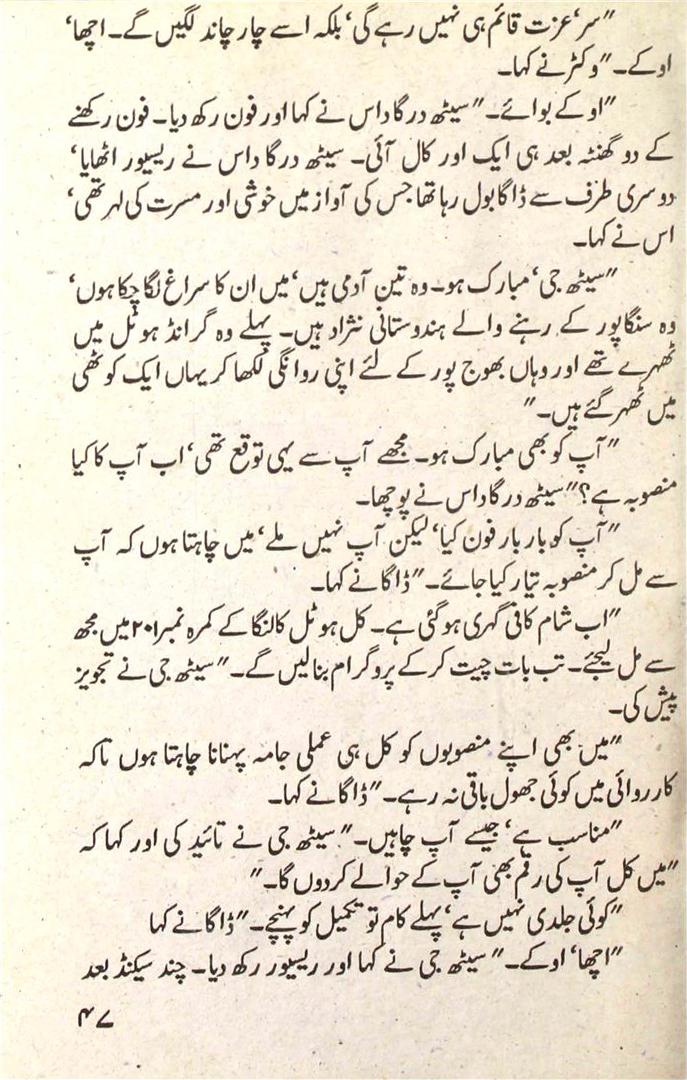 "سر‘ عزت قائم ہی نہیں رہے گی‘ بلکہ اسے چار چاند لگیں گے۔ اچھا‘
اوکے۔" وکٹر نے کہا۔
"اوکے بوائے۔" سیٹھ درگا داس نے کہا اور فون رکھ دیا۔ فون رکھنے
کے دو گھنٹہ بعد ہی ایک اور کال آئی۔ سیٹھ درگا داس نے ریسیور اٹھایا‘
دوسری طرف سے ڈاگا بول رہا تھا جس کی آواز میں خوشی اور مسرت کی لہر تھی‘
اس نے کہا۔
"سیٹھ جی‘ مبارک ہو۔ وہ تین آدمی ہیں‘ میں ان کا سراغ لگا چکا ہوں‘
وہ سنگاپور کے رہنے والے ہندوستانی نژاد ہیں۔ پہلے وہ گرانڈ ہوٹل میں
ٹھہرے تھے اور وہاں بھوج پور کے لئے اپنی روانگی لکھا کر یہاں ایک کوٹھی
میں ٹھہر گئے ہیں۔"
"آپ کو بھی مبارک ہو۔ مجھے آپ سے یہی توقع تھی‘ اب آپ کا کیا
منصوبہ ہے؟" سیٹھ درگا داس نے پوچھا۔
"آپ کو بار بار فون کیا‘ لیکن آپ نہیں ملے‘ میں چاہتا ہوں کہ آپ
سے مل کر منصوبہ تیار کیا جائے۔" ڈاگا نے کہا۔
"اب شام کافی گہری ہوگئی ہے۔ کل ہوٹل کالنگا کے کمرہ نمبر ۲۰۱ میں مجھ
سے مل لیجئے۔ تب بات چیت کر کے پروگرام بنا لیں گے۔" سیٹھ جی نے تجویز
پیش کی۔
"میں بھی اپنے منصوبوں کو کل ہی عملی جامہ پہنانا چاہتا ہوں تاکہ
کارروائی میں کوئی جھول باقی نہ رہے۔" ڈاگا نے کہا۔
"مناسب ہے‘ جیسے آپ چاہیں۔" سیٹھ جی نے تائید کی اور کہا کہ
"میں کل آپ کی رقم بھی آپ کے حوالے کردوں گا۔"
"کوئی جلدی نہیں ہے‘ پہلے کام تو تکمیل کو پہنچے۔" ڈاگا نے کہا
"اچھا‘ اوکے۔" سیٹھ جی نے کہا اور ریسیور رکھ دیا۔ چند سیکنڈ بعد
۴۷